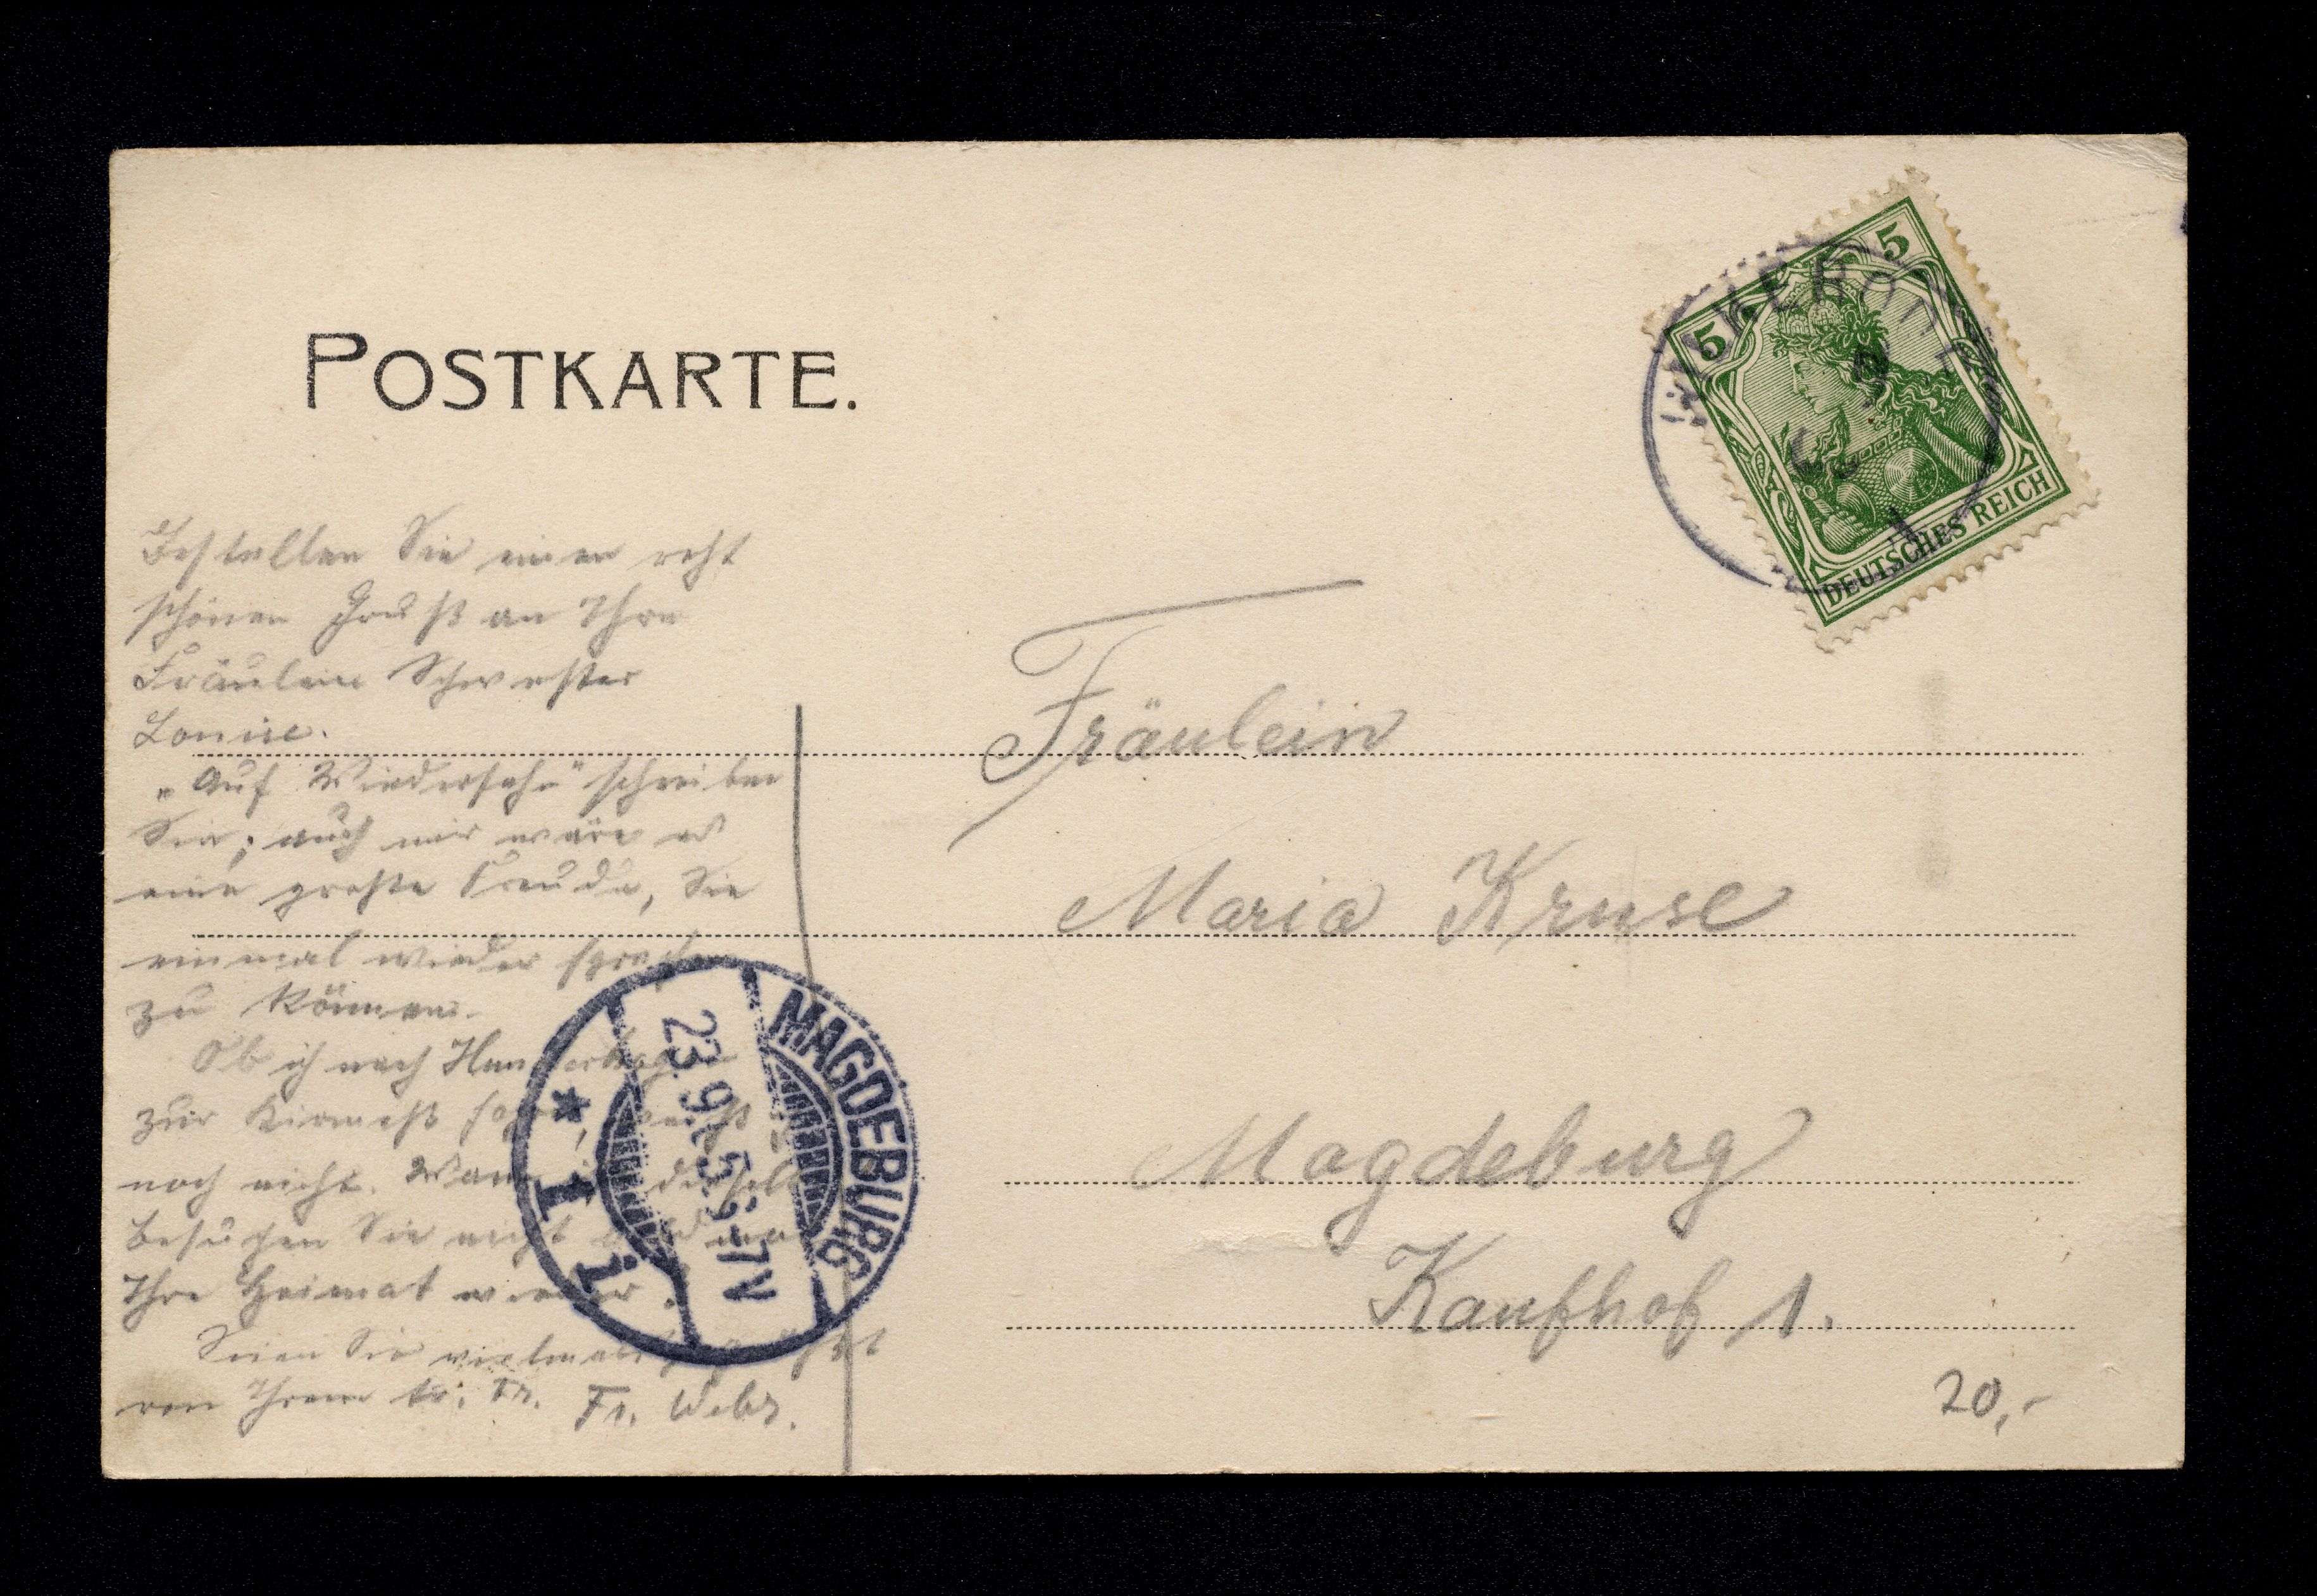 POSTKARTE.
5
5
DEUTSCHES REICH
Bestellen Sie einen recht
schönen Gruß an Ihre
Fräulein Schwester
Louise.
„Auf Wiedersehn" schreiben
Sie; auch mir wäre es
eine große Freude, Sie
einmal wieder sprechen
zu können.
Ob ich nach
zur Kirmeß weiß
noch nicht. Wann
besuchen Sie nicht
Ihre Heimat wieder?
Seien Sie vielmals gegrüßt
von Ihrem tr. Fr. Fr. Webr.
Fräulein
Maria Kruse
Magdeburg
Kaufhof 1.
20,-
MAGDEBURG
23.9. 5. 6-7V
* 1 i